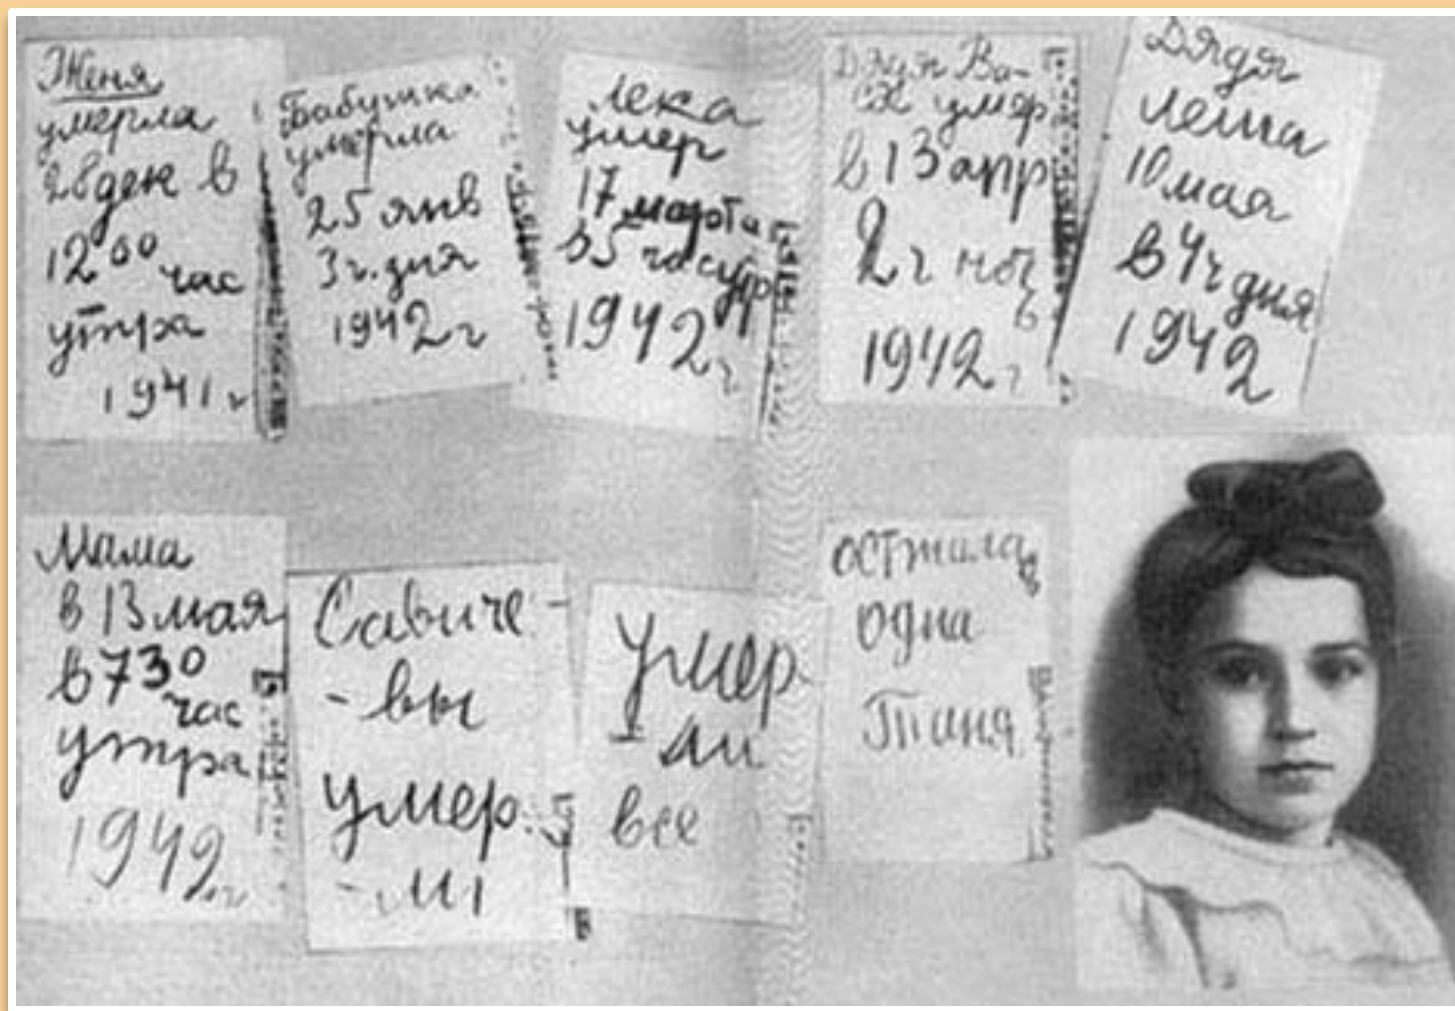 Женя
умерла
28 дек в
12 00 час
утра
1941 г
Бабушка
умерла
25 янв
3 ч. дня
1942 г
Лека
умер
17 марта
в 5 час утр
1942 г
Дядя Ва-
ся умер
в 13 апр
2 ч ноч
ь
1942 г
Дядя
Леша
10 мая
в 4 ч дня
1942
Мама
в 13 мая
в 7 30
час
утра
1942 г
Савиче-
-вы
умер
-ли
Умер
-ли
все
Осталас
одна
Таня